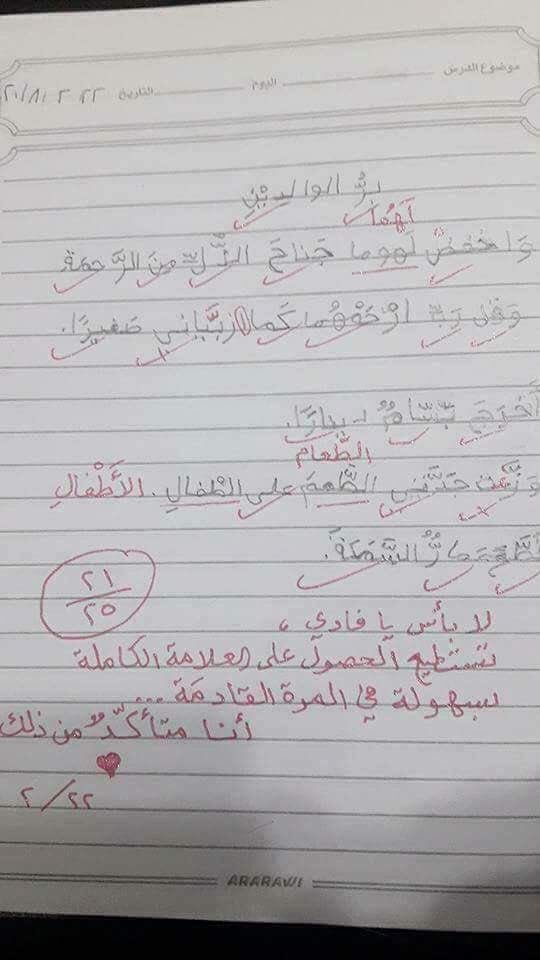 موضوع الدرس اليوم التاريخ ٢٢ ٢ /٨١/٢٠
بِرُّ الوالِديْنِ
لَهُما
وَاخفِضْ لَهوما جَناحَ الذُّلِّ مِنَ الرَّحمَةِ.
وَقُل رَبِّ ارْحَمْهُما كَما رَبَّياني صَغيرًا.
أَخرَجَ بَسّامٌ دينارًا.
الطَّعام
وَزَّعَت جَدَّتي الطَّعمَ على الطْفالِ. الأَطْفالِ
السَّمَكَةَ.
٢١
٢٥
لا بأس يا فادي،
تستطيع الحصول على العلامة الكاملة
بسهولة في المرة القادمَة...
أنا متأكّدٌ من ذلك
٢/٢٢
ARARAWI